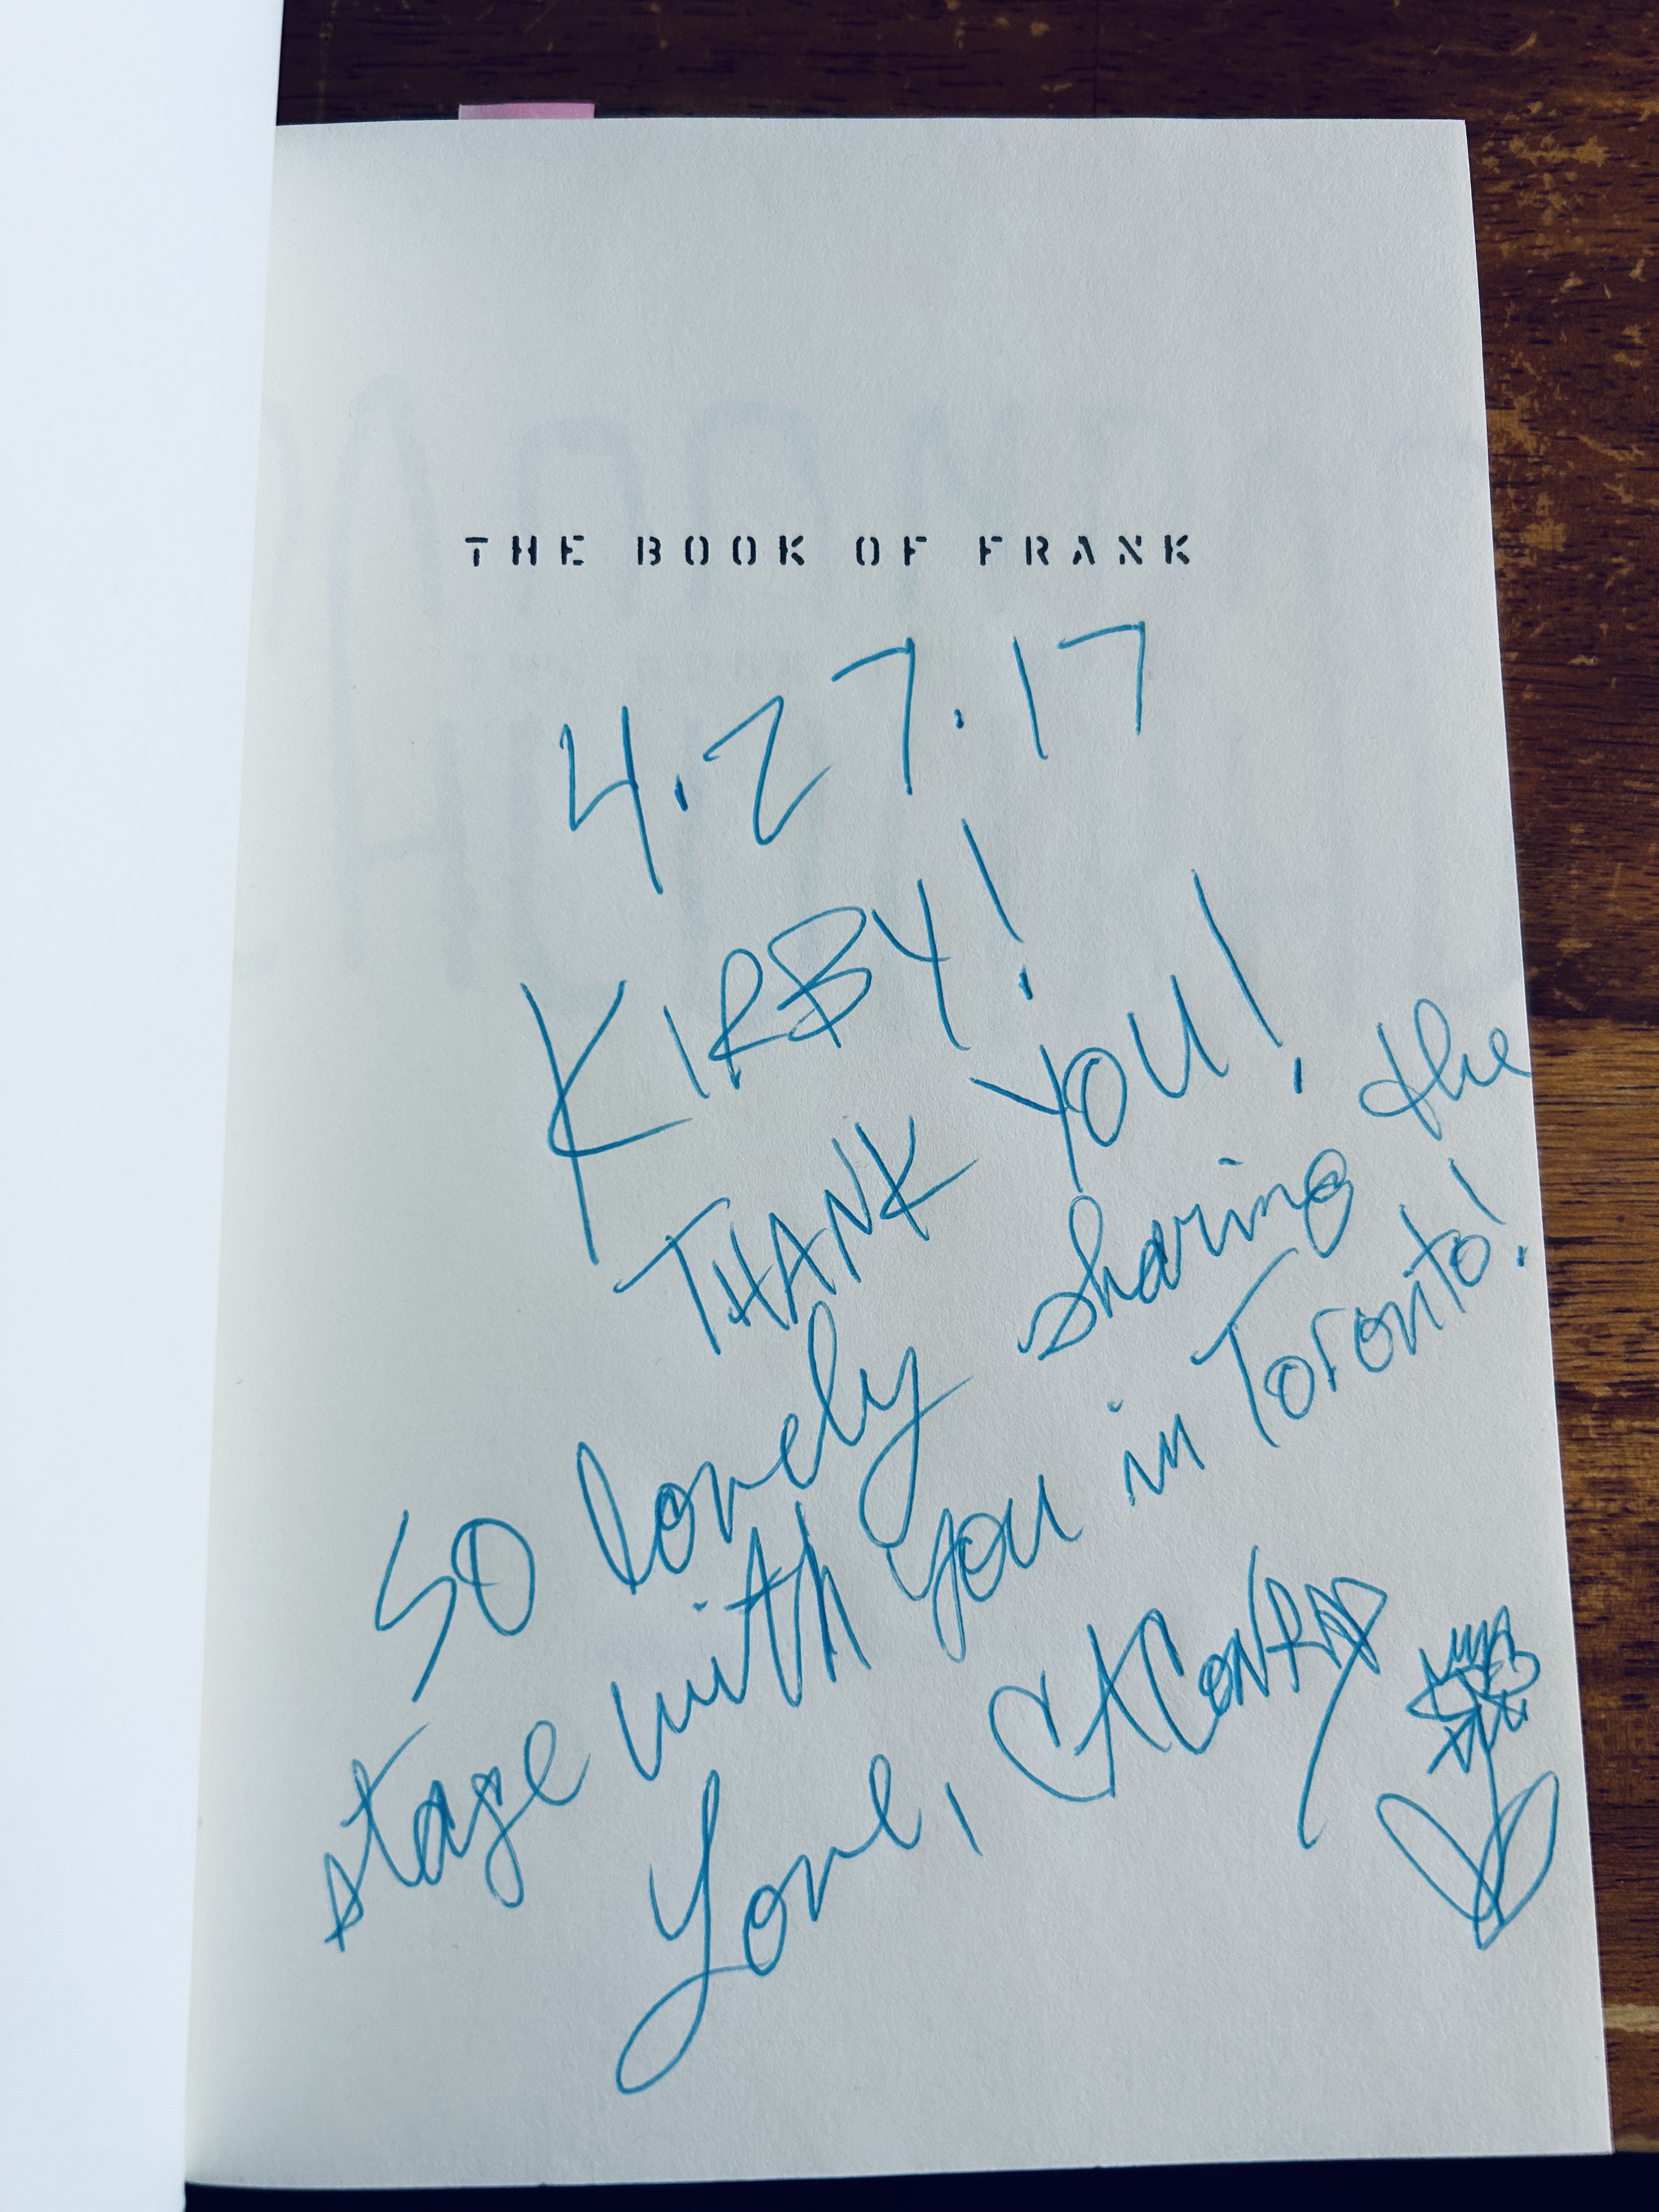 THE BOOK OF FRANK
4.27.17
KIRBY!
THANK YOU!
SO lovely sharing the
stage with you in Toronto!
Love, CAConRAD